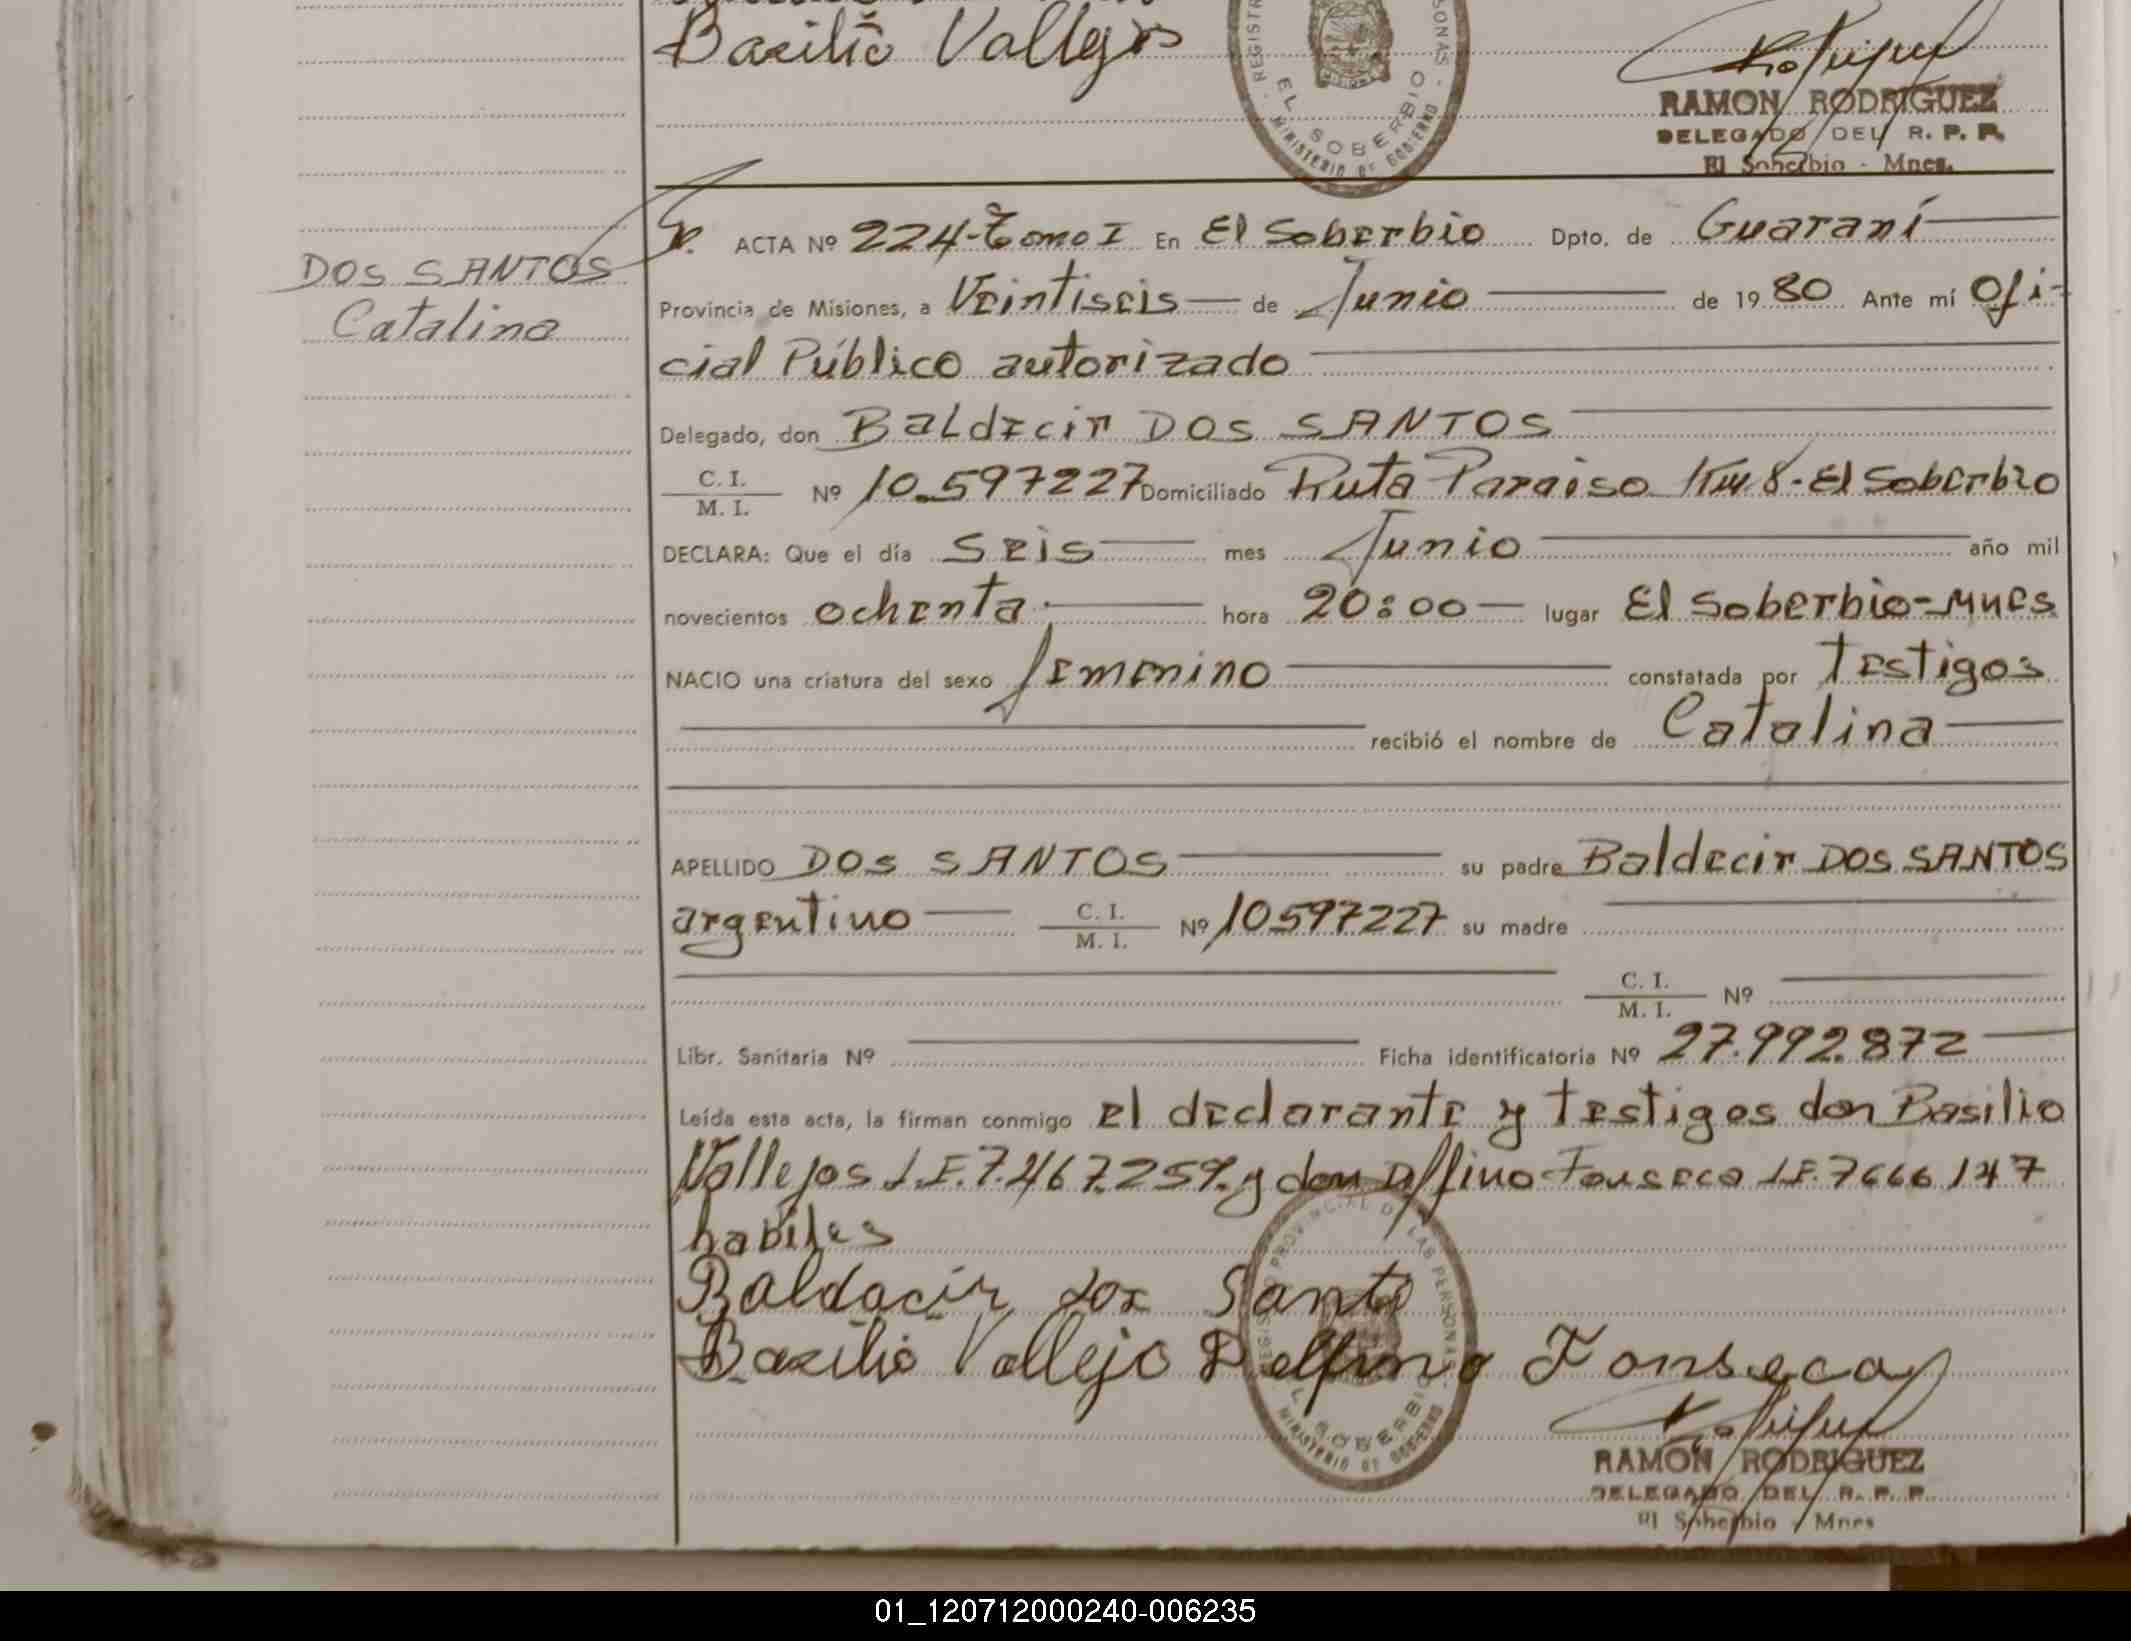 Bacilio Vallejos
EL SOBERBIO
MINISTERIO DE GOBIERNO
RAMON RODRIGUEZ
DELEGADO DEL R. P. P.
El Soberbio - Mnes.
DOS SANTOS
Catalina
ACTA Nº 224-Tomo I En El Soberbio Dpto. de Guaraní
Provincia de Misiones, a Veintiseis de Junio de 1980 Ante mí Ofi-
cial Público autorizado
Delegado, don Baldecir DOS SANTOS
C. I.
M. I. Nº 10.597227 Domiciliado Ruta Paraiso Km 8.- El Soberbio
DECLARA: Que el día Seis mes Junio año mil
novecientos ochenta.- hora 20:00 lugar El Soberbio-Mnes
NACIO una criatura del sexo femenino constatada por testigos
recibió el nombre de Catalina
APELLIDO DOS SANTOS su padre Baldecir DOS SANTOS
argentino C. I.
M. I. Nº 10597227 su madre
C. I.
M. I. Nº
Libr. Sanitaria Nº Ficha identificatoria Nº 27.992.872
Leída esta acta, la firman conmigo el declarante y testigos don Basilio
Vallejos L.E. 7.467.259. y don Delfino Fonseca L.E. 7666147
habiles
Baldacir dos Santo
Bacilio Vallejo Delfino Fonseca
REGISTRO PROVINCIAL DE LAS PERSONAS
EL SOBERBIO
MINISTERIO DE GOBIERNO
RAMON RODRIGUEZ
DELEGADO DEL R. P. P.
El Soberbio - Mnes
01_120712000240-006235